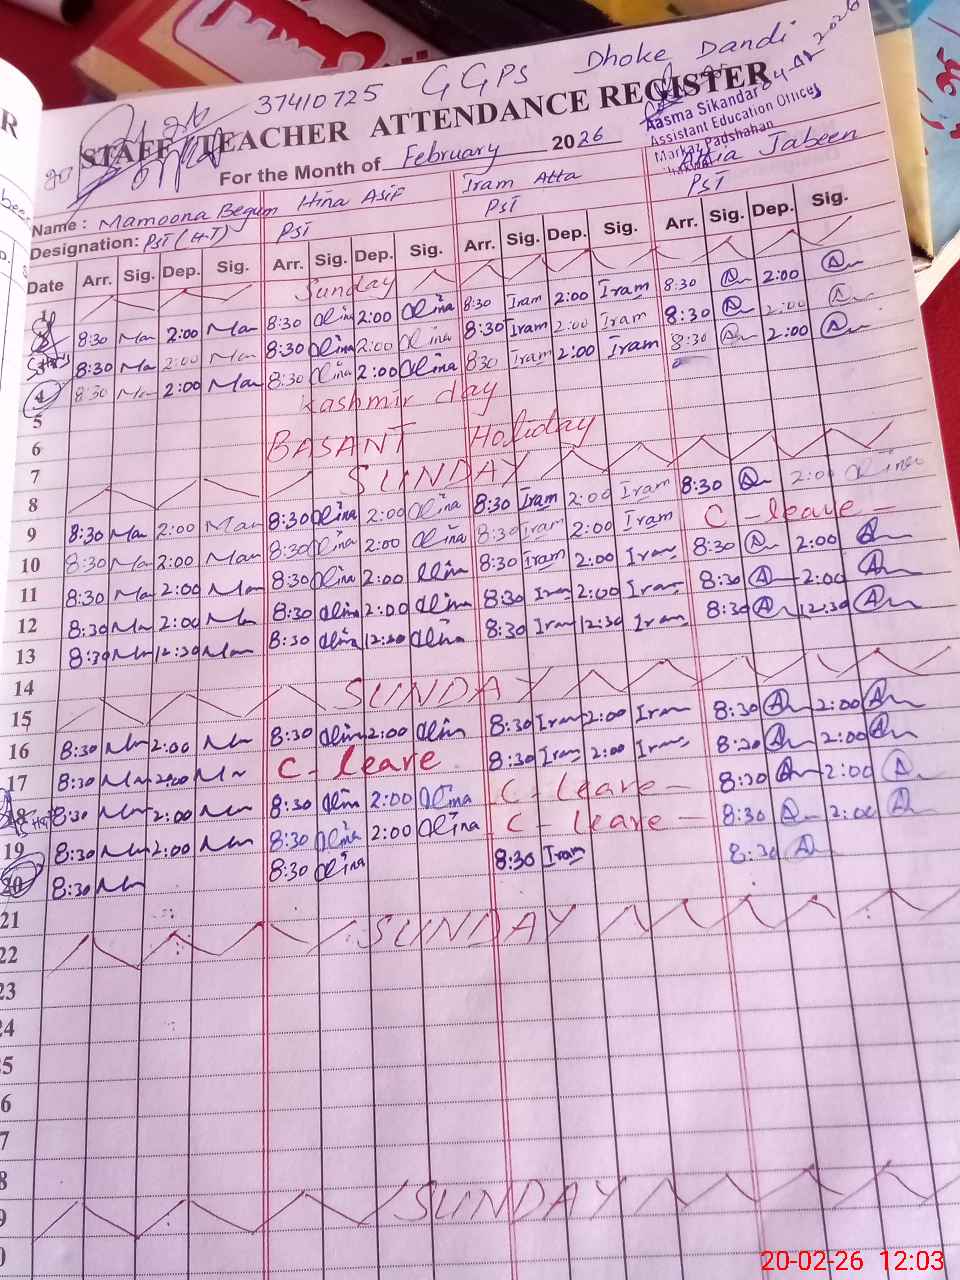 37410725 GGPS Dhoke Dandi
STAFF / TEACHER ATTENDANCE REGISTER
Aasma Sikandar
Assistant Education Officer
Markaz Padshahan
For the Month of February 2026
Name: Mamoona Begum Hina Asif Iram Atta Jabeen
Designation: PST (H-T) PST PST PST
Date Arr. Sig. Dep. Sig. Arr. Sig. Dep. Sig. Arr. Sig. Dep. Sig. Arr. Sig. Dep. Sig.
1 Sunday
8:30 Ma 2:00 Ma 8:30 Hina 2:00 Hina 8:30 Iram 2:00 Iram 8:30 A 2:00 A
8:30 Ma 2:00 Ma 8:30 Hina 2:00 Hina 8:30 Iram 2:00 Iram 8:30 A 2:00 A
4 8:30 Ma 2:00 Ma 8:30 Hina 2:00 Hina 8:30 Iram 2:00 Iram 8:30 A 2:00 A
5 Kashmir day
6 BASANT Holiday
7
8 SUNDAY
9 8:30 Ma 2:00 Ma 8:30 Hina 2:00 Hina 8:30 Iram 2:00 Iram 8:30 A 2:00
10 8:30 Ma 2:00 Ma 8:30 Hina 2:00 Hina 8:30 Iram 2:00 Iram C - leave -
11 8:30 Ma 2:00 Ma 8:30 Hina 2:00 Hina 8:30 Iram 2:00 Iram 8:30 A 2:00 A
12 8:30 Ma 2:00 Ma 8:30 Hina 2:00 Hina 8:30 Iram 2:00 Iram 8:30 A 2:00 A
13 8:30 Ma 12:30 Ma 8:30 Hina 12:30 Hina 8:30 Iram 12:30 Iram 8:30 A 12:30 A
14
15 SUNDAY
16 8:30 Ma 2:00 Ma 8:30 Hina 2:00 Hina 8:30 Iram 2:00 Iram 8:30 A 2:00 A
17 8:30 Ma 2:00 Ma C - leave 8:30 Iram 2:00 Iram 8:30 A 2:00 A
18 8:30 Ma 2:00 Ma 8:30 Hina 2:00 Hina C - leave - 8:30 A 2:00 A
19 8:30 Ma 2:00 Ma 8:30 Hina 2:00 Hina C - leave - 8:30 A 2:00 A
20 8:30 Ma 8:30 Hina 8:30 Iram 8:30 A
21
22 SUNDAY
23
24
5
6
7
8
9 SUNDAY
0
20-02-26 12:03